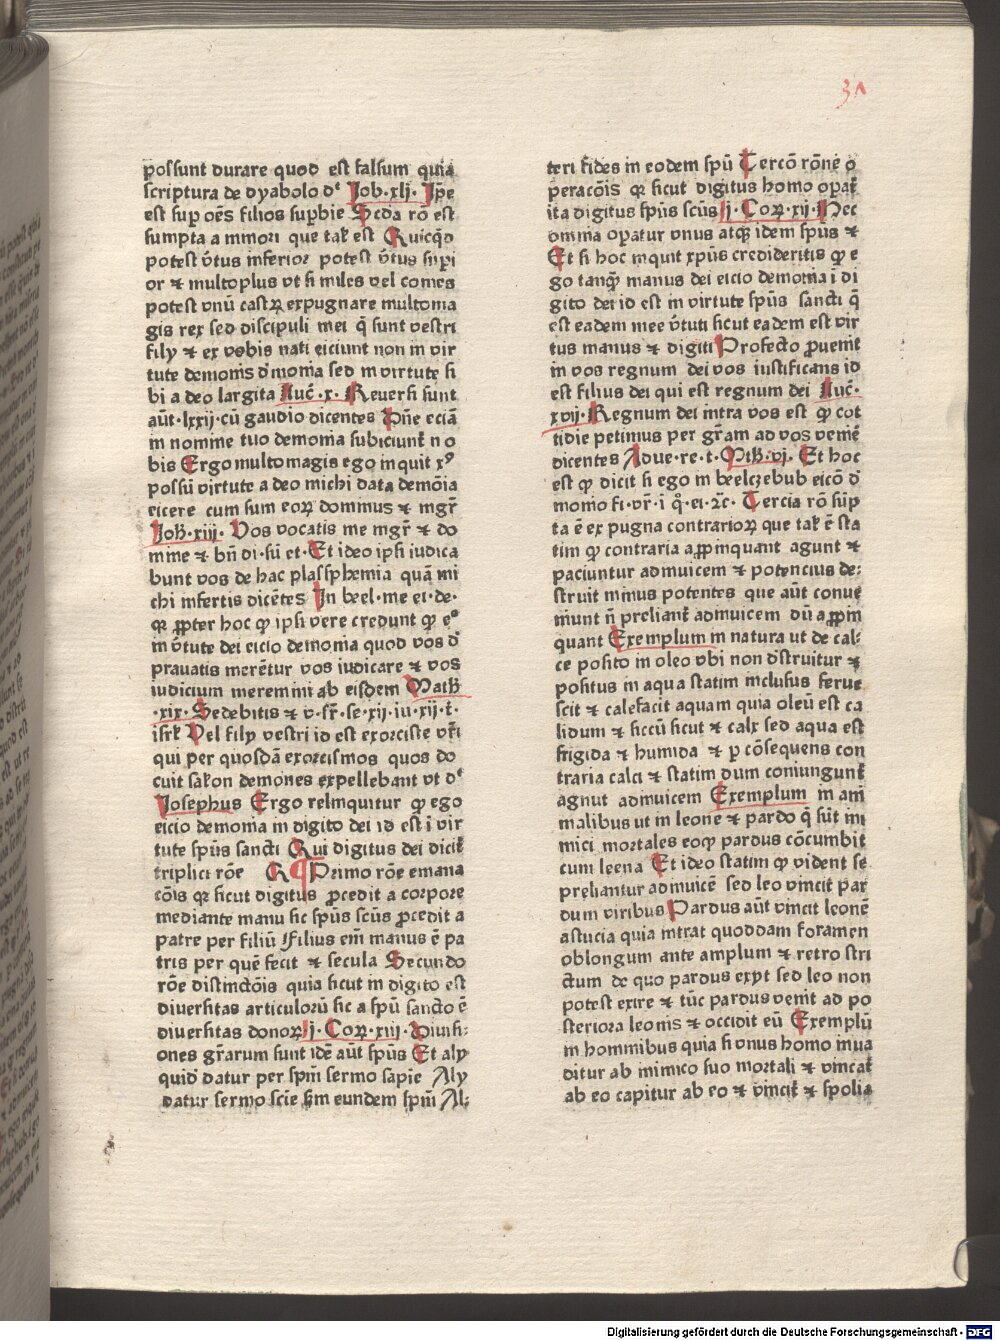 31
possunt durare quod est falsum quia
scriptura de dyabolo dᵉ Job·xlj· Jp̄e
est sup oēs filios supbie Scda rō est
sumpta a minori que tal̄ est Quicq̄d
potest v̄tus inferior potest v̄tus supi
or ⁊ multoplus vt si miles vel comes
potest vnū castꝝ expugnare multoma
gis rex sed discipuli mei q̄ sunt vestri
filij ⁊ ex vobis nati eiciunt non in vir
tute demonis d̄monia sed in virtute si
bi a deo largita Luc̄·x· Reuersi sunt
aūt·lxxij·cū gaudio dicentes Dn̄e eciā
in nomine tuo demonia subiciunt̄ no
bis Ergo multomagis ego inquit xꝰ
possū virtute a deo michi data demōia
eicere cum sum eoꝝ dominus ⁊ mgr̄
Joh̄·xiii· Vos vocatis me mgr̄ ⁊ do
mine ⁊ bn̄ di·sū et· Et ideo ipsi iudica
bunt vos de hac plassphemia quā mi
chi infertis dicētes Jn beel·me ei·de·
qꝛ ꝓpter hoc ꝙ ipsi vere credunt ꝙ eᵍ
in v̄tute dei eicio demonia quod vos d̄
prauatis merētur vos iudicare ⁊ vos
iudicium meremini ab eisdem Math̄
·xix· Sedebitis ⁊ v·sr̄·se·xij·iu·xij·t̄·
isrl̄ Vel filij vestri id est exorciste vr̄i
qui per quosdā exorcismos quos do
cuit salon̄ demones expellebant vt dᵗ
Josephus Ergo relinquitur ꝙ ego
eicio demonia in digito dei id est ī vir
tute spūs sancti Qui digitus dei dicit̄
triplici rōe Q ¶ Primo rōe emana
cōis qꝛ sicut digitus ꝓcedit a corpore
mediante manu sic spūs scūs ꝓcedit a
patre per filiū Filius em̄ manus ē pa
tris per quē fecit ⁊ secula Secundo
rōe distinctōis quia sicut in digito est
diuersitas articulorū sic a spū sancto ē
diuersitas donoꝝ j· Coꝝ·xiij· Diuisi:
ones gr̄arum sunt idē aūt spūs Et alij
quid̄ datur per spm̄ sermo sapīe Alij
datur sermo scīe sm̄ eundem spm̄ Al:
teri fides in eodem spū Tercō rōne o
peracōis qꝛ sicut digitus homo opat̄
ita digitus spūs scūs j· Coꝝ·xij· Hec
omnia opatur vnus atqꝫ idem spūs ⁊
Et si hoc inquit xpūs credideritis ꝙ e
go tanqꝫ manus dei eicio demonia ī di
gito dei id est in virtute spūs sancti q̄
est eadem mee v̄tuti sicut eadem est vir
tus manus ⁊ digiti Profecto ꝓuenit
in vos regnum dei vos iustificans id
est filius dei qui est regnum dei Luc̄·
xvij· Regnum dei intra vos est ꝙ cot
tidie petimus per gr̄am ad vos venire
dicentes Adue·re·t· Mth̄·vj· Et hoc
est ꝙ dicit si ego in beelczebub eicō d̄
monio fi·vr̄·i q̄·ei·ꝛc̄· Tercia rō sūp
ta ē ex pugna contrarioꝝ que tal̄ ē sta
tim ꝙ contraria aꝓpinquant agunt ⁊
paciuntur adinuicem ⁊ potencius de:
struit minus potentes que aūt conue
niunt n̄ preliant̄ adinuicem dū aꝓpin
quant Exemplum in natura ut de cal:
ce posito in oleo vbi non d̄struitur ⁊
positus in aqua statim inclusus ferue
scit ⁊ calefacit aquam quia oleū est ca
lidum ⁊ siccū sicut ⁊ calx sed aqua est
frigida ⁊ humida ⁊ p cōsequens con
traria calci ⁊ statim dum coniungunt̄
agnut adinuicem Exemplum in ani
malibus ut in leone ⁊ pardo q̄ sūt ini
mici mortales eoqꝫ pardus cōcumbit
cum leena Et ideo statim ꝙ vident se
preliantur adinuicē sed leo vincit par
dum viribus Pardus aūt vincit leonē
astucia quia intrat quoddam foramen
oblongum ante amplum ⁊ retro stri
ctum de quo pardus exyt sed leo non
potest exire ⁊ tūc pardus venit ad po
steriora leonis ⁊ occidit eū Exemplū
in hominibus quia si vnus homo inua
ditur ab inimico suo mortali ⁊ vincat̄
ab eo capitur ab eo ⁊ vincit̄ ⁊ spolia
Digitalisierung gefördert durch die Deutsche Forschungsgemeinschaft - DFG